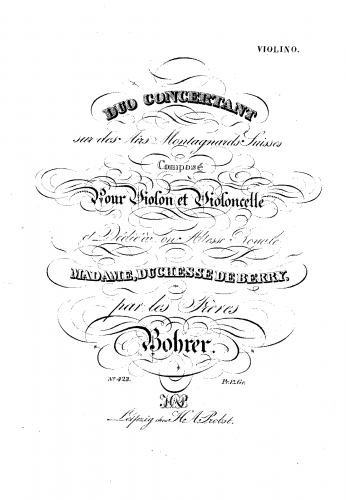 VIOLINO.
DUO CONCERTANT
sur des Airs Montagnards Suisses
Composé
Pour Violon et Violoncelle
et Dédiée
MADAME, DUCHESSE DE BERRY,
par les Frères
Bohrer.
No. 422. Pr. 12 Gr.
HAP
Leipzig chez H. A. Probst.